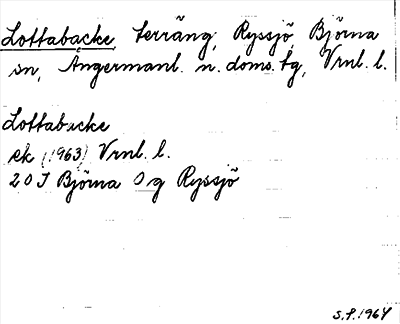 Lottabacke, terräng, Ryssjö, Björna
sn, Ångermanl. n. doms.tg, Vrnl. l.
Lottabacke
ek (1963) Vrnl. l.
20 J Björna 0 g Ryssjö
S.P. 1964